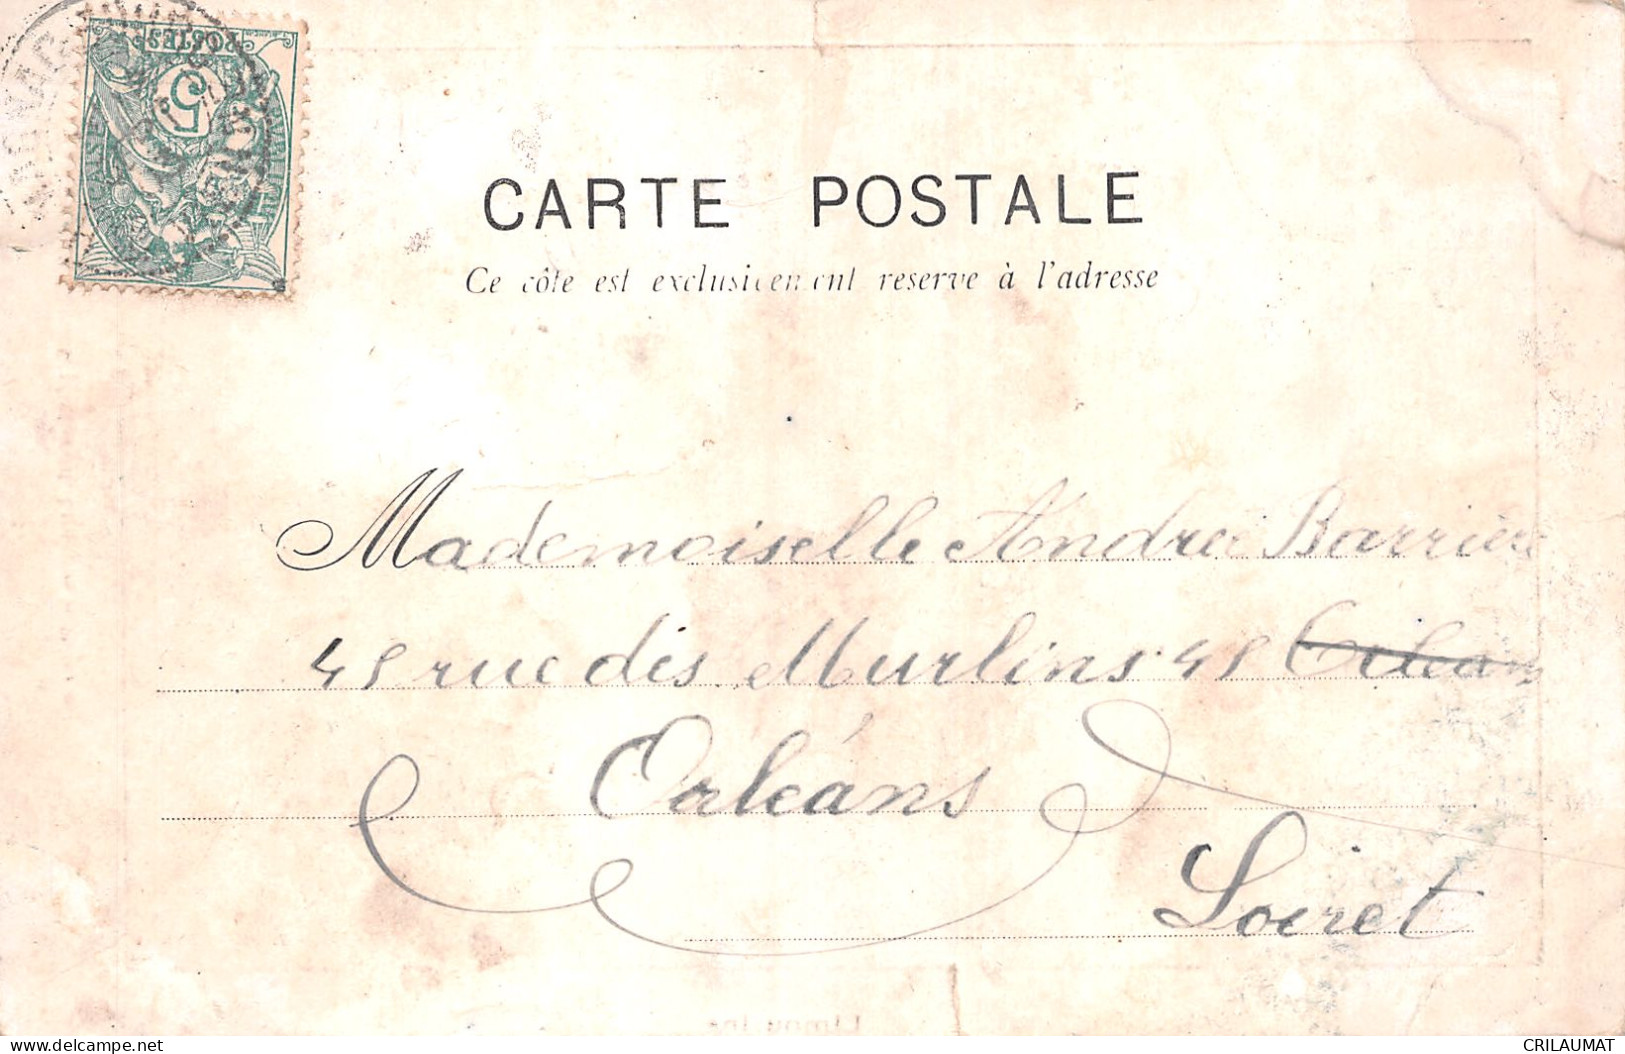 POSTES
5
CARTE POSTALE
Ce côte est exclusivement reserve à l'adresse
Mademoiselle Andreé Barrière
45 rue des Murlins 45 Orleans
Orléans
Loiret
CRILAUMAT